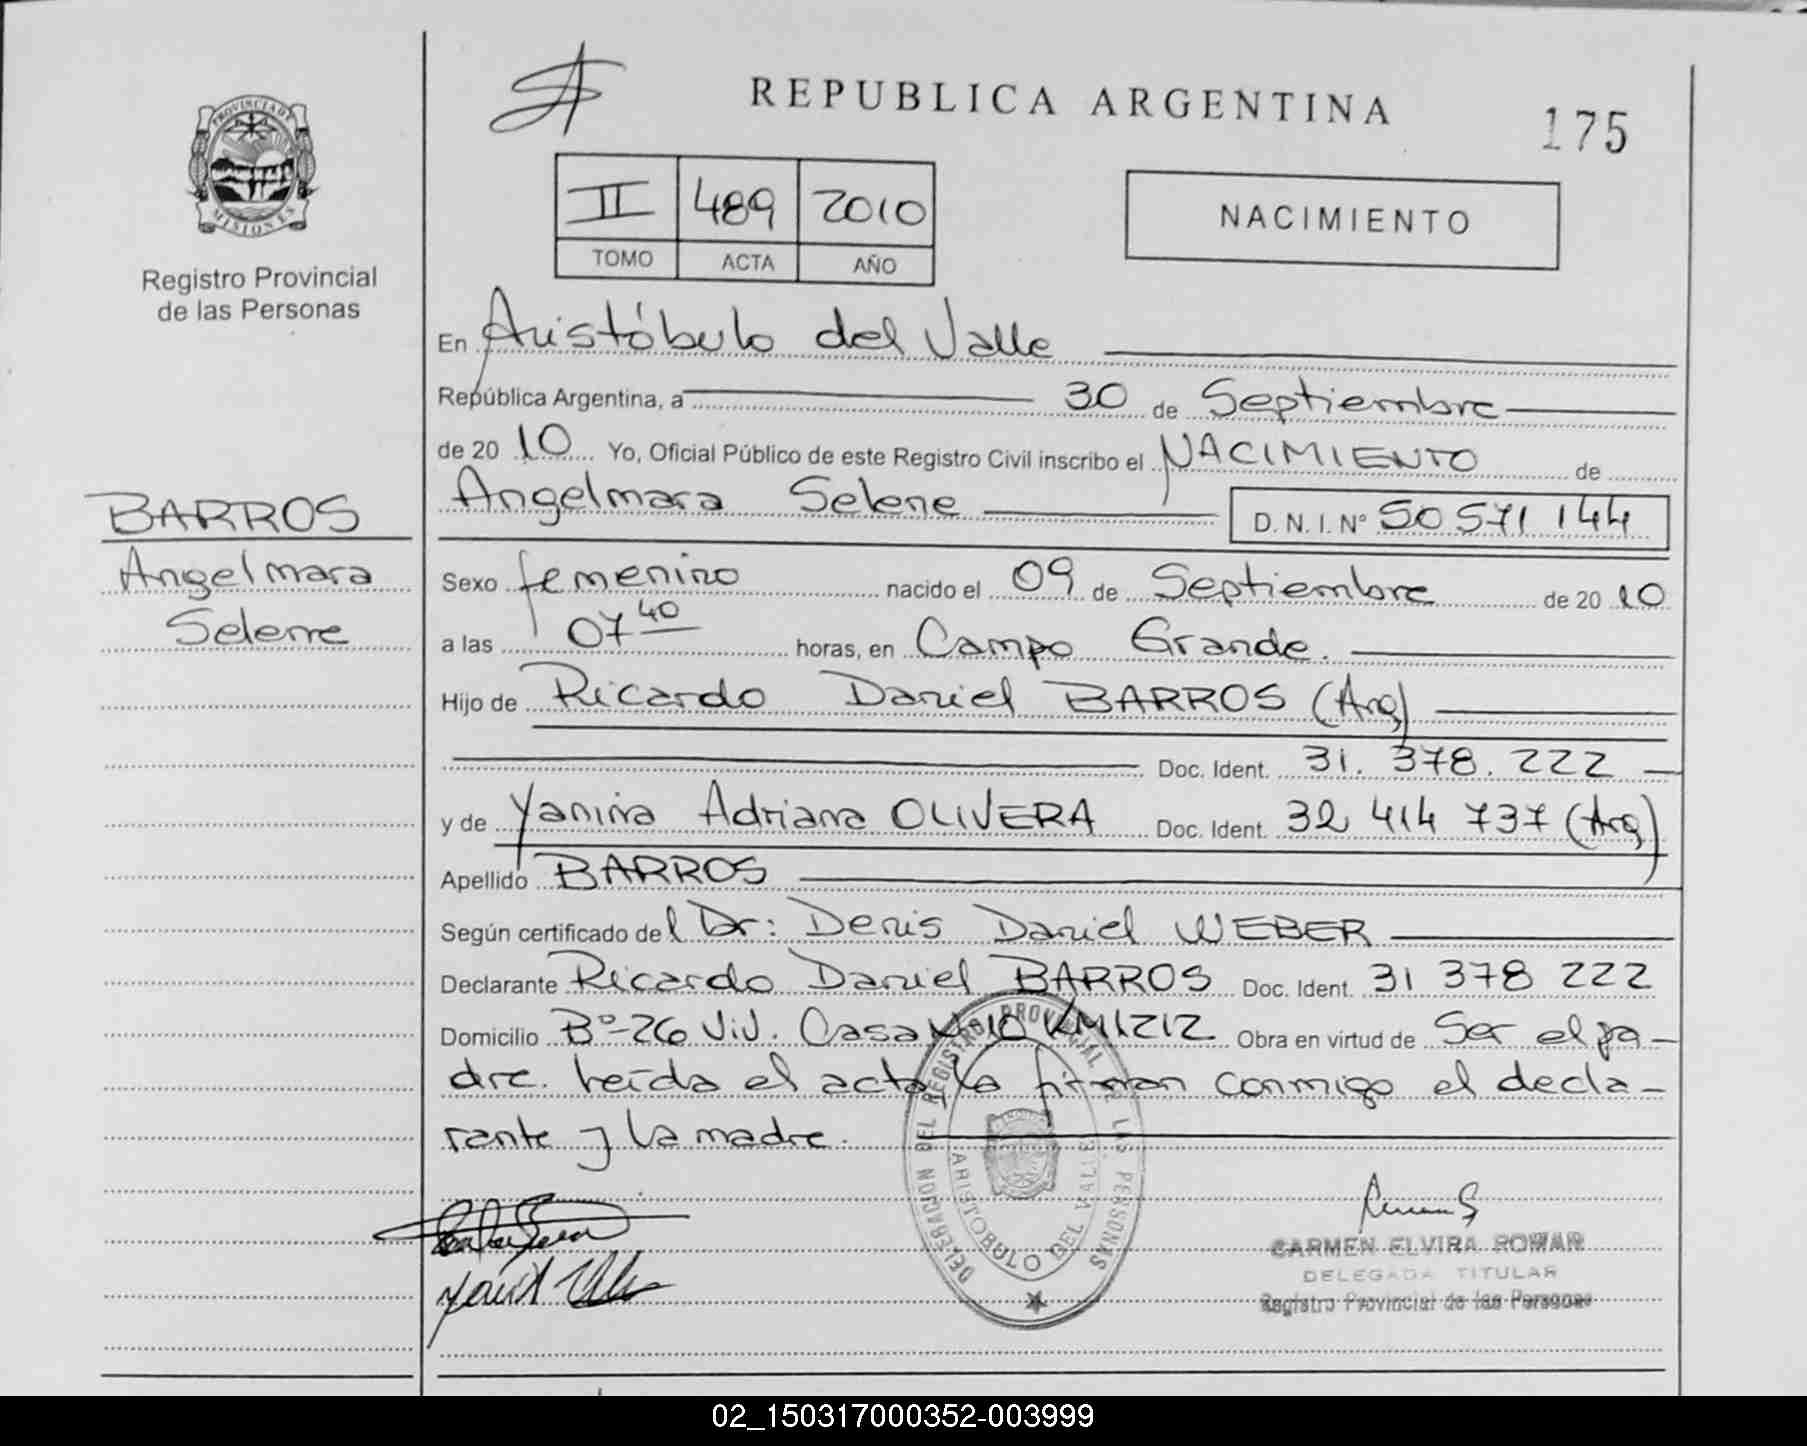 REPUBLICA ARGENTINA
175
II 489 2010
TOMO ACTA AÑO
NACIMIENTO
PROVINCIA DE
MISIONES
Registro Provincial
de las Personas
BARROS
Angelmara
Selene
En Aristóbulo del Valle
República Argentina, a 30 de Septiembre
de 2010 Yo, Oficial Público de este Registro Civil inscribo el NACIMIENTO de
Angelmara Selene D. N. I. N° 50 571 144
Sexo femenino nacido el 09 de Septiembre de 2010
a las 07 40 horas, en Campo Grande.
Hijo de Ricardo Daniel BARROS (Arg)
Doc. Ident. 31. 378. 222
y de Yanina Adriana OLIVERA Doc. Ident. 32 414 737 (Arg)
Apellido BARROS
Según certificado del Dr: Denis Daniel WEBER
Declarante Ricardo Daniel BARROS Doc. Ident. 31 378 222
Domicilio B°-26 Viv. Casa N°10 KM1212 Obra en virtud de Ser el pa-
dre. Leída el acta la firman conmigo el decla-
rante y la madre.
DELEGACION DEL REGISTRO PROVINCIAL DE LAS PERSONAS
ARISTOBULO DEL VALLE
CARMEN ELVIRA ROMAN
DELEGADA TITULAR
Registro Provincial de las Personas
02_150317000352-003999